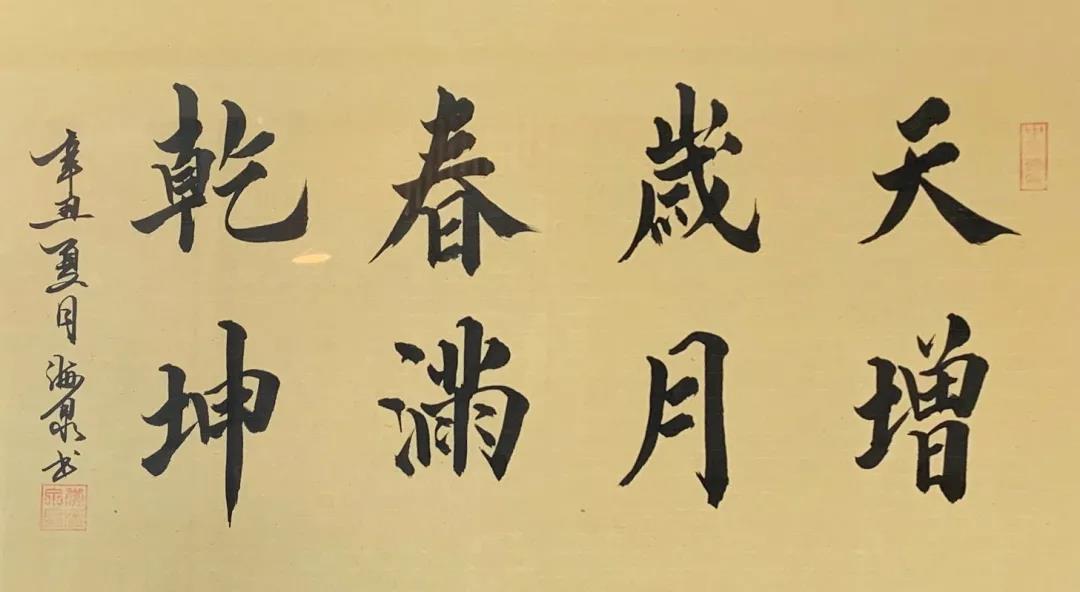 天增
歲月
春滿
乾坤
辛丑夏月海泉书